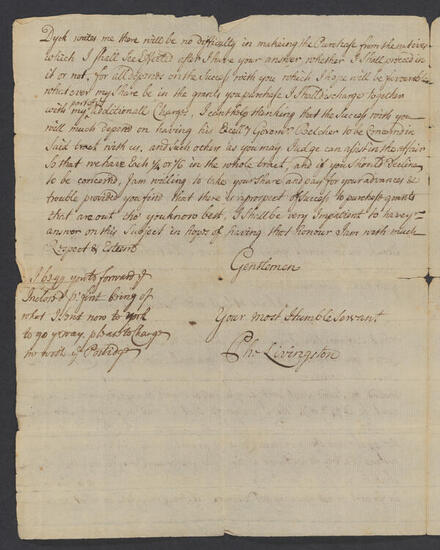 Dyck writes me there will be no difficulty in making the Purchase from the natives
which I shall See Effected after I have your answer, whether I shall proceed in
it or not, for all depends on the Success with you which I hope will be favourable
what ever my share be in the grants you purchase I shall discharge together
part of
with my additionall Charge, I cant help thinking that the Success with you
will much depend on having his Excell.y Govern.r Belcher to be Concern'd in
Said tract with us, and such others as you may Judge can assist in the affair
So that we have Each 1/4 or 1/6 in the whole tract, and if you should Decline
to be concernd, I am willing to take your Share and pay for your advances &
trouble provided you find that there is a prospect of Success to purchase grants
that are out tho' you know best, I shall be very Impatient to have yr
answer on this Subject in hopes of having that Honour I am with much
Respect & Esteem
Gentlemen
Your most Humble Servant
Phs Livingston
I begg you to forward ye
Inclosd pr first being of
what I sent now to york
to go yr way, to Charge
me with ye Postidge